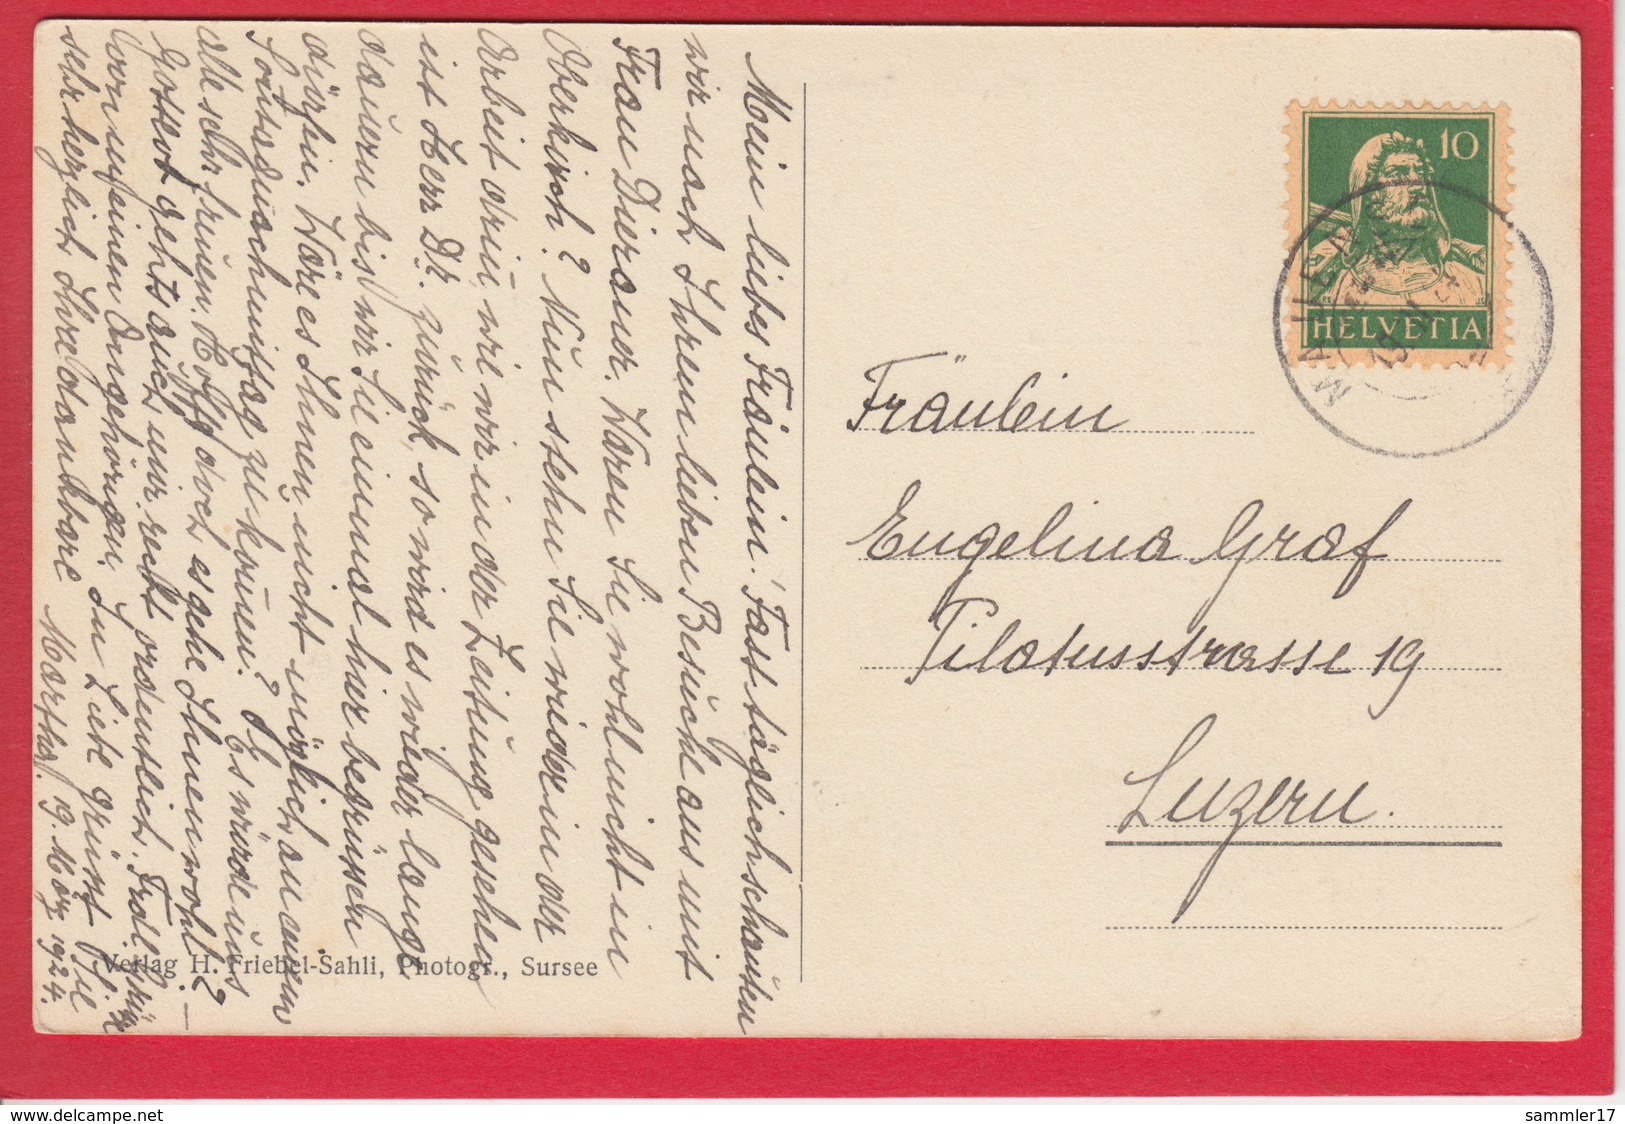 Mein liebes Fräulein! Fast täglich schauten
wir nach Ihrem lieben Besuche aus mit
Frau Duraner. Waren Sie wohl nicht in
Oberkirch? Nun stehn Sie wieder in der
Arbeit drin, wie wir in der Zeitung gesehen
ist Herr Dr. zurück, so wird es wieder lange
dauern bis wir Sie einmal hier begrüssen
dürfen. Wäre es Ihnen nicht möglich an einem
Sonntagnachmittag zu kommen? Es würde uns
alle sehr freuen. Hoffe doch es gehe Ihnen wohl?
Gottlob geht's auch mir recht ordentlich.
von meinen Angehörigen. In Liebe grüsst Sie
sehr herzlich Ihre dankbare
19. März 1924.
Verlag H. Friebel-Sahli, Photogr., Sursee
10
HELVETIA
Fräulein
Engelina Graf
Pilatusstrasse 19
Luzern.
www.delcampe.net
sammler17